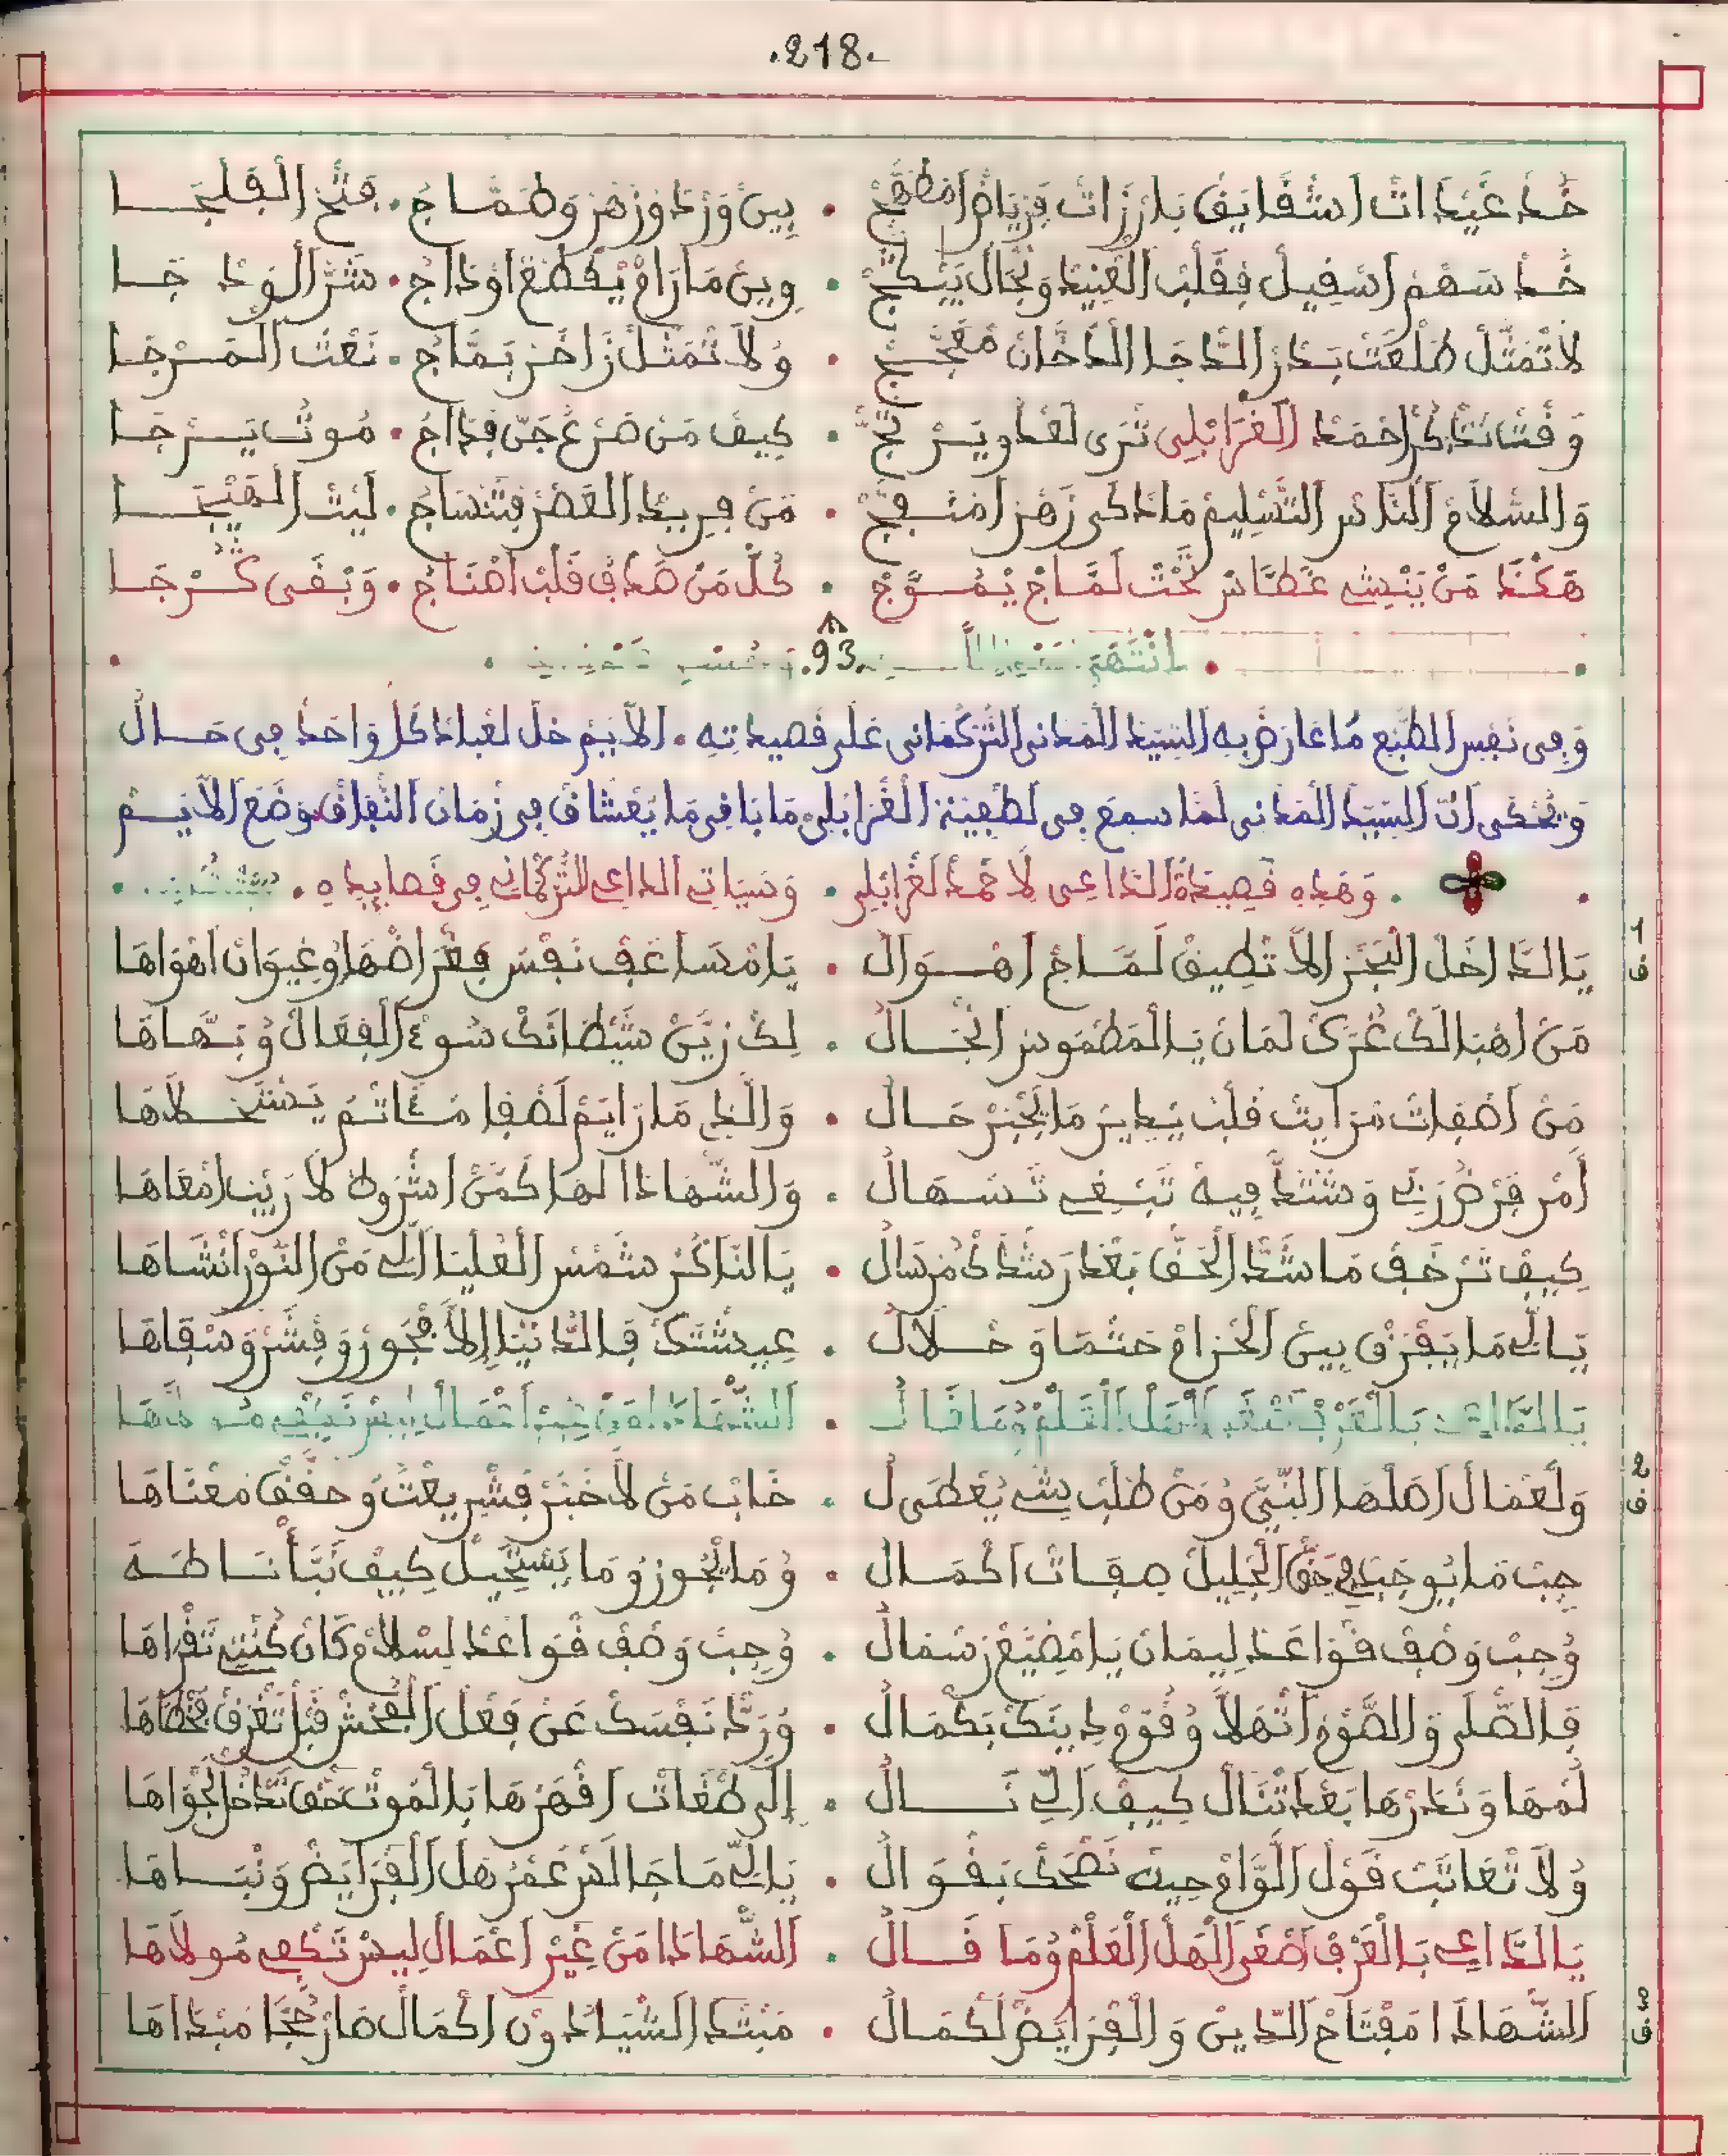 .218.
خد غيدات اشقايق بارزات فرياض امطهج • بين ورد وزهر وطماج • فتح الفلجا
خد سهم اسفيل فقلب العنيد وبحال يتكج • وين ما راح يقطع اوداج • شر الودجا
لا تمثل طلعت بدر الدجا الدخان معجج • ولا تمثل زاخر بماج • نعت المرجا
وقتا تدكر احمد الغرابلي ترى لعدو يرتج • كيف من صرع جن فداج • موت يرجا
والسلام الناس التسليم ما دكى زهر امفج • من فريد العصر فتساج • ليث الهيجا
هكدا من ينش غطاس تحت لماج يموج • كل من صدف قلب اهناج • وبقى كرجا
انتهت .93.
وفي نفس الطبع ما عارض به السيد المدني التركماني على قصيدته • الايم خل لعباد كل واحد في حال
ويحكى ان السيد المدني لما سمع في لطعينة الغرابلي ما بافي ما يعشاق في زمان النفاق وضع الايم
• وهده قصيدة الداعي لاحمد لغرابلي • وسياتي الداعي للتركماني في قصايده •
1 ف
يا الداخل البحر الا تطيق لماج اهوال • يا امساعف نفس فغراضها وغيوان اهواها
من اهبالك غرك لمان يا المطموس انجال • لك زين شيطانك سوء الفعال وبهاها
من اصفات مرايت قلب يدير ما يخبر حال • والد ما رايم لصفا مـاتم يستحلاها
امر فرض ربي وشتد فيه تبغي تسهال • والشهادا لها كمن اشروط لا ريب امعاها
كيف ترخف ما شد الحق بعد رشدك مرسال • يا الناكر شمس العليا الي من النور انشاها
يا لي ما يفرق بين الحرام حتما وحلال • عيشتك فالدنيا إلا فجور وفشر وسفاها
يا الداعي بالعرف اصغى الهل العلم وما قال • الشهادا من غير اعمال ليس تكفي مولاها
2 ف
ولعمال اصلها النبي ومن طلب شي يعطى ل • خاب من لا خبر فشريعت وحقق معناها
جب ما يوجب في حق الجليل صفات اكمال • وما يجوز وما يستحيل كيف نبأنا طه
وجب وصف قواعد ليمان يا مضيع رسمال • وجب وصف قواعد ليسلام كان كنتي تقراها
فالصلى والصوم اتهلا وقوم دينك بكمال • ورد نفسك عن فعل الفحش قبل تغرق فخطاها
لمها وندرها بعد تنال كيف الي نال • إلى طغات اقهرها بالموت حقا تدخل لجواها
ولا تعاتب قول اللوام حين نضحك بقوال • يا لي ما جا لس عمر هل الفرايض ونباها
يا الداعي بالعرف اصغى الهل العلم وما قال • الشهادا من غير اعمال ليس تكفي مولاها
3 ف
الشهادا مفتاح الدين والفرايض لكمال • مبتدا الشيا دون اكمال صار محجا مبداها